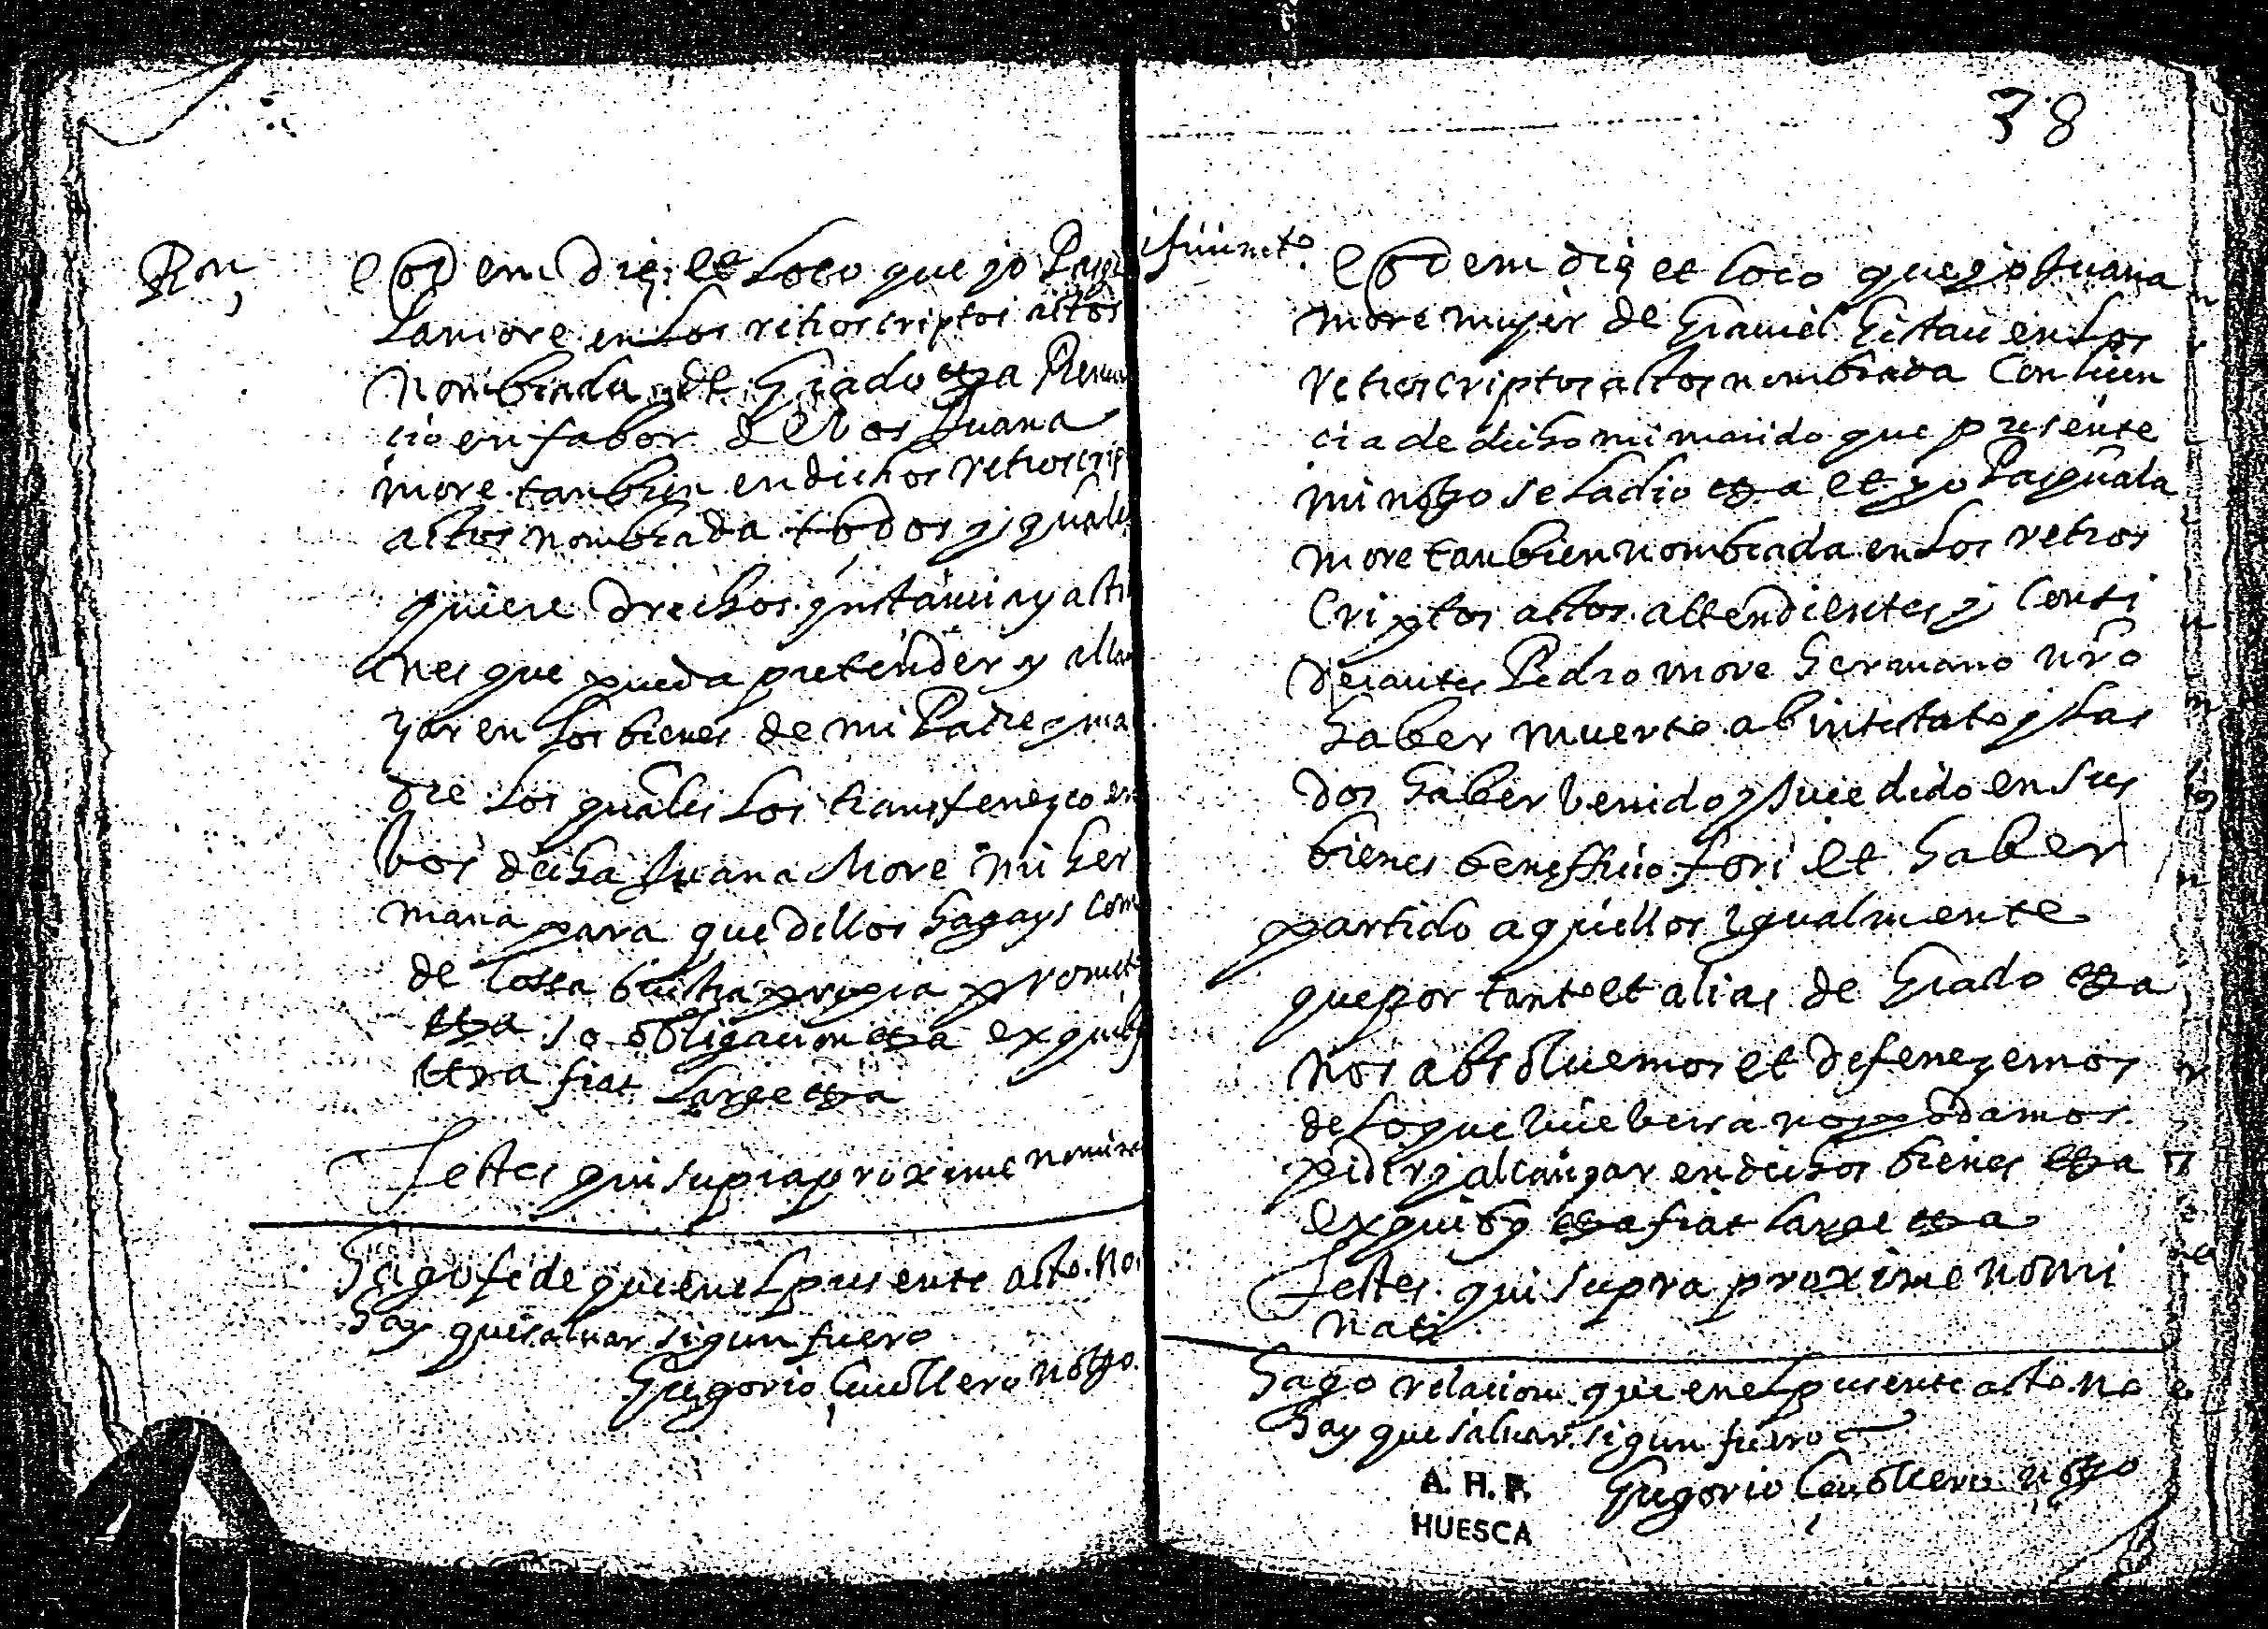 Ron
eodem die et loco que yo Pasqu
la more en los retroscriptos actos
nombrada de Grado etza Renun
cio en fabor de vos Juana
more tanbien en dichos retroscrip
actos nombrada todos y quales
quiere drechos ynstancias y actio
nes que pueda pretender y alcan
zar en los bienes de mi Padre y ma
dre los quales los transfenezco en
vos dicha Juana More mi her
mana para que dellos hagays com
de cossa buestra propia promet
etza so obligacion etza ex quibus
etza fiat large etza
Testes qui supra proxime nomina
Hago fe de que en el presente acto no
hay que salvar sigun fuero
Gregorio notro
38
Eodem die et loco que yo Juana
more mujer de Graviel Gistau en los
retroscriptos actos nombrada Con licen
cia de dicho mi marido que presente
mi notro se la dio etza et yo Pasquala
more tanbien nombrada en los retros
criptos actos attendientes y Consi
derantes Pedro more hermano nro
haber muerto abintestato y las
dos haber benido y sucedido en sus
bienes benefficio fori et haber
partido aquellos igualmente
que por tanto et alias de Grado etza
nos absoluemos et defenezemos
de lo que huebera no podamos
pidir y alcançar en dichos bienes etza
ex quibus etza fiat large etza
Testes qui supra proxime nomi
nati
Hago relacion que en el presente acto no
hay que salvar sigun fuero
Gregorio notro
A. H. P.
HUESCA